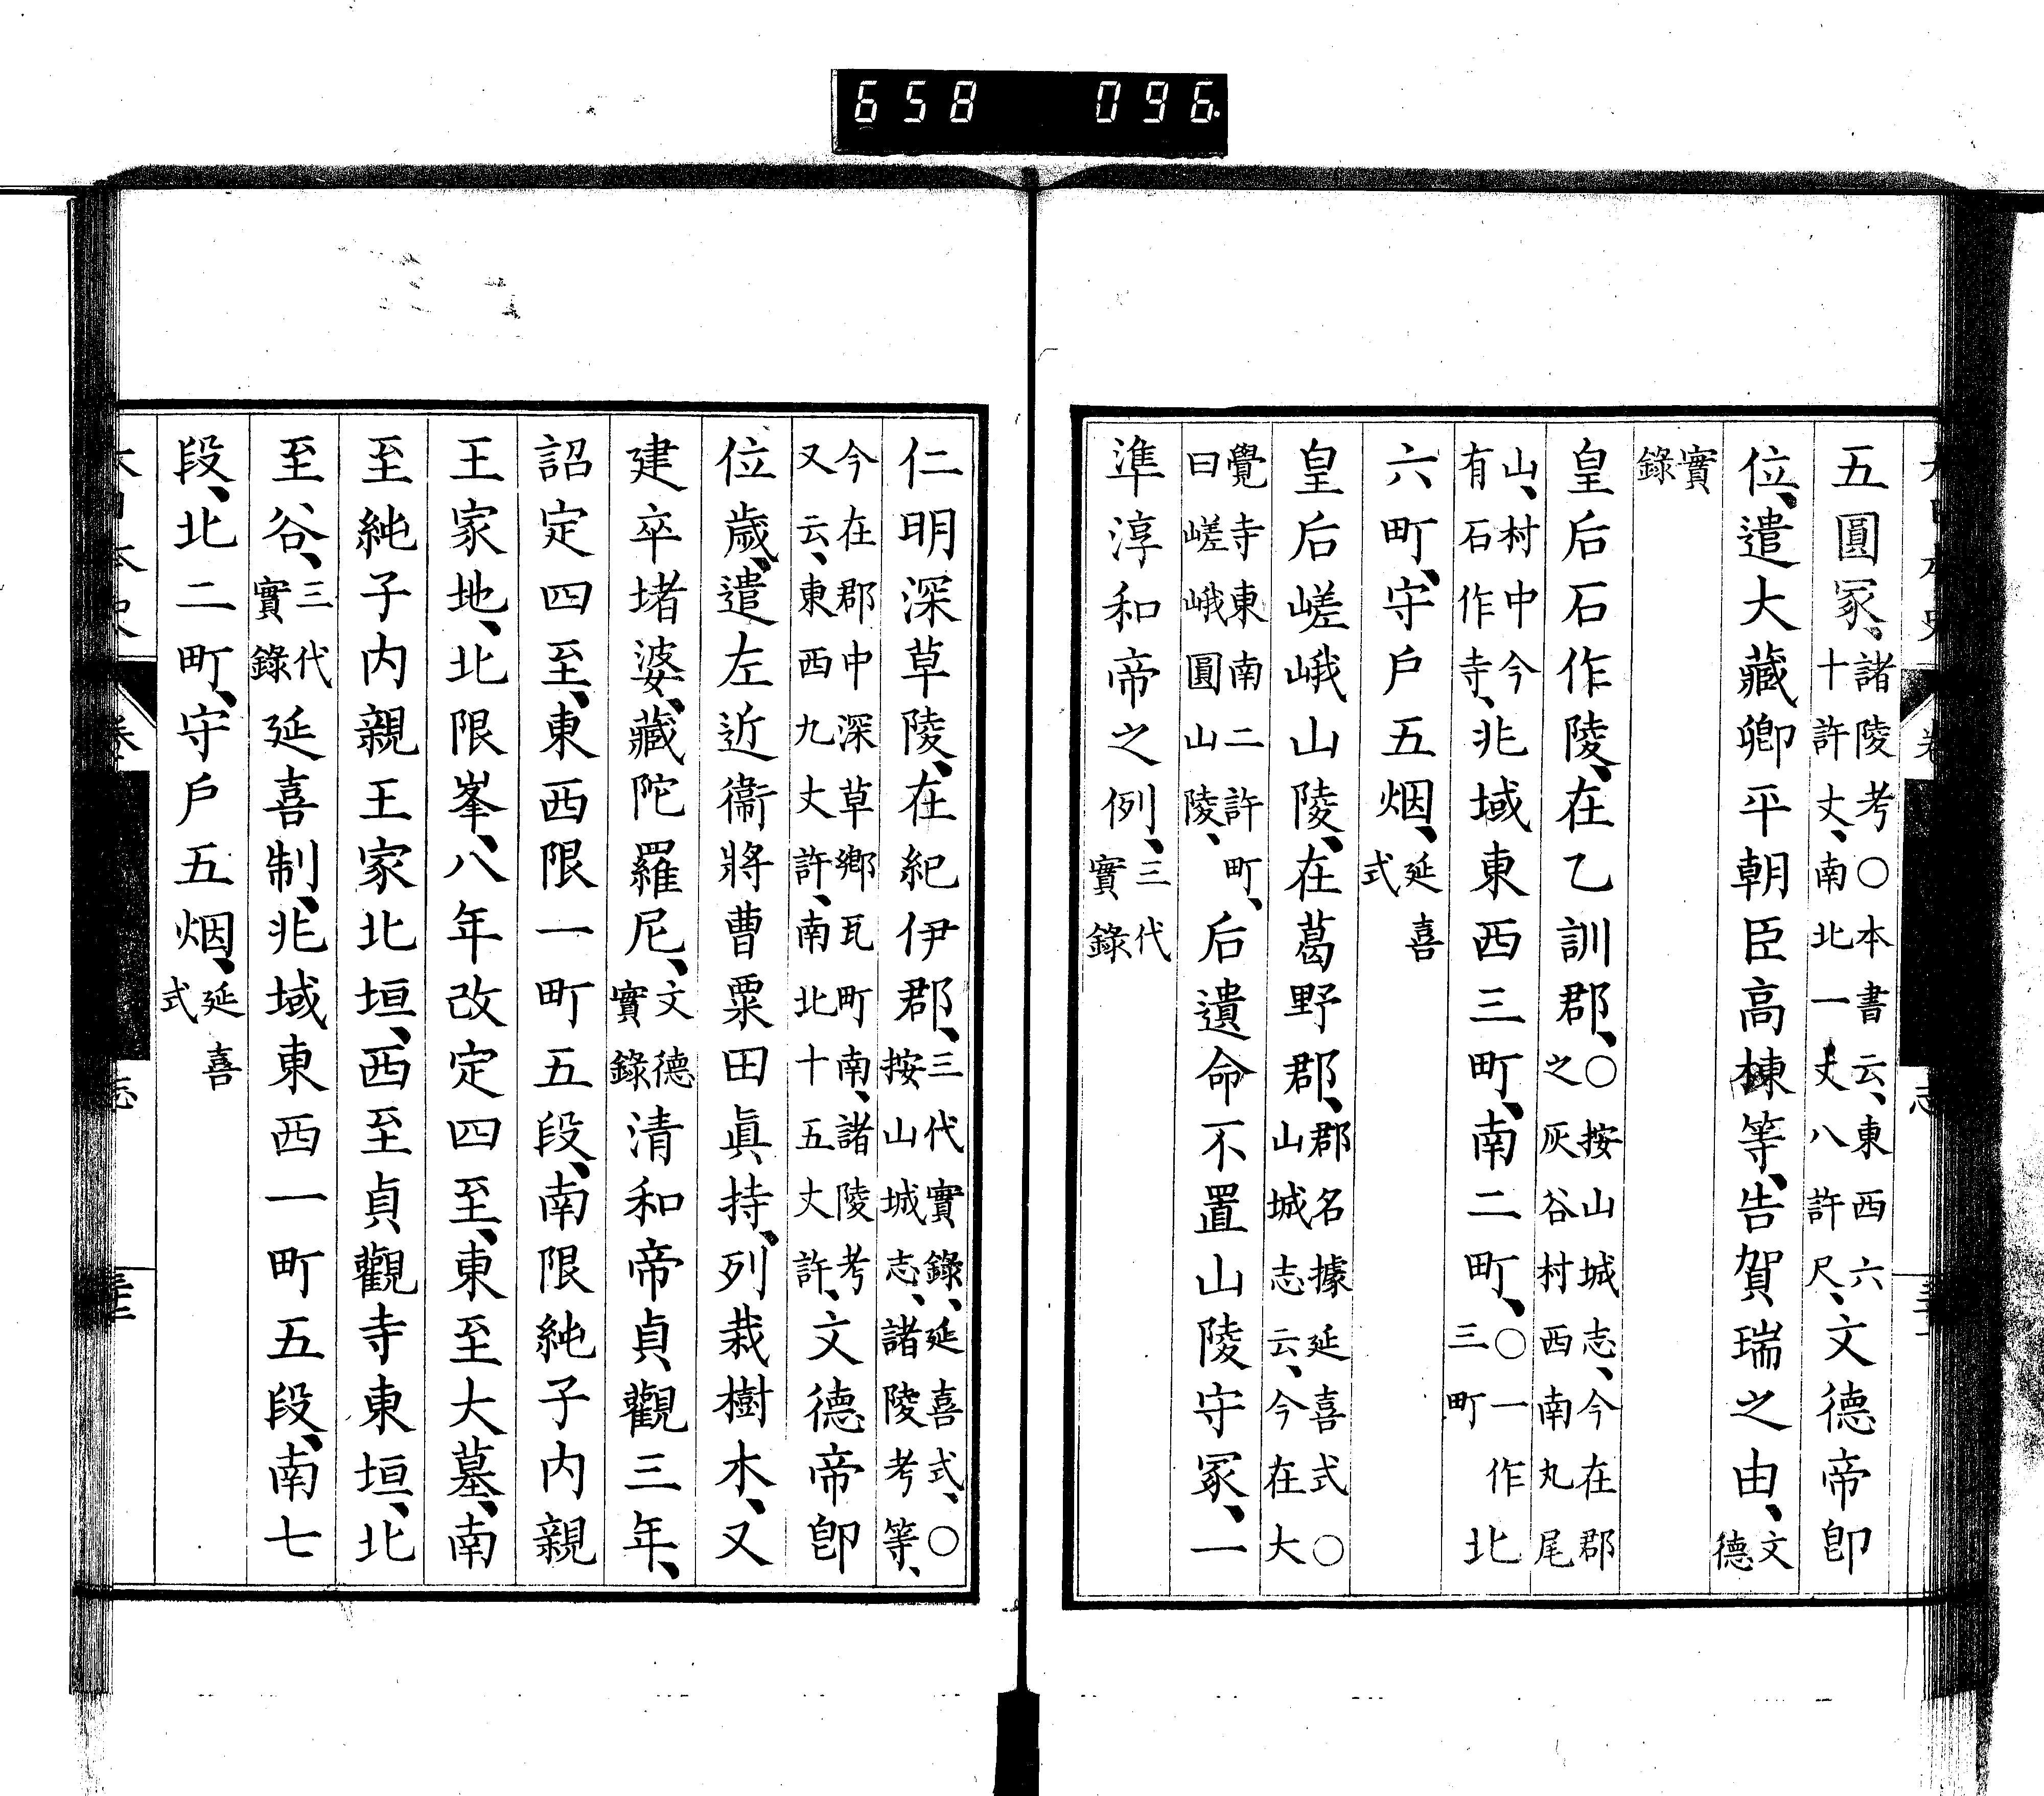 658 096
五圓冢、諸陵考○本書云、東西六十許丈、南北一丈八許尺、文德帝卽
位、遣大藏卿平朝臣高棟等、告賀瑞之由、文德
實錄
皇后石作陵、在乙訓郡、○按山城志、今在郡之灰谷村西南丸尾
山、村中今有石作寺、兆域東西三町、南二町、○一作三町北
六町、守戶五烟、延喜式
皇后嵯峨山陵、在葛野郡、郡名據延喜式○山城志云、今在大
覺寺東南二許町、曰嵯峨圓山陵、后遺命不置山陵守冢、一
準淳和帝之例、三代實錄
仁明深草陵、在紀伊郡、三代實錄、延喜式、○按山城志、諸陵考等、
今在郡中深草鄉瓦町南、諸陵考又云、東西九丈許、南北十五丈許、文德帝卽
位歲、遣左近衞將曹粟田眞持、列栽樹木、又
建卒堵婆、藏陀羅尼、文德實錄淸和帝貞觀三年、
詔定四至、東西限一町五段、南限純子內親
王家地、北限峯、八年改定四至、東至大墓、南
至純子內親王家北垣、西至貞觀寺東垣、北
至谷、三代實錄延喜制、兆域東西一町五段、南七
段、北二町、守戶五烟、延喜式